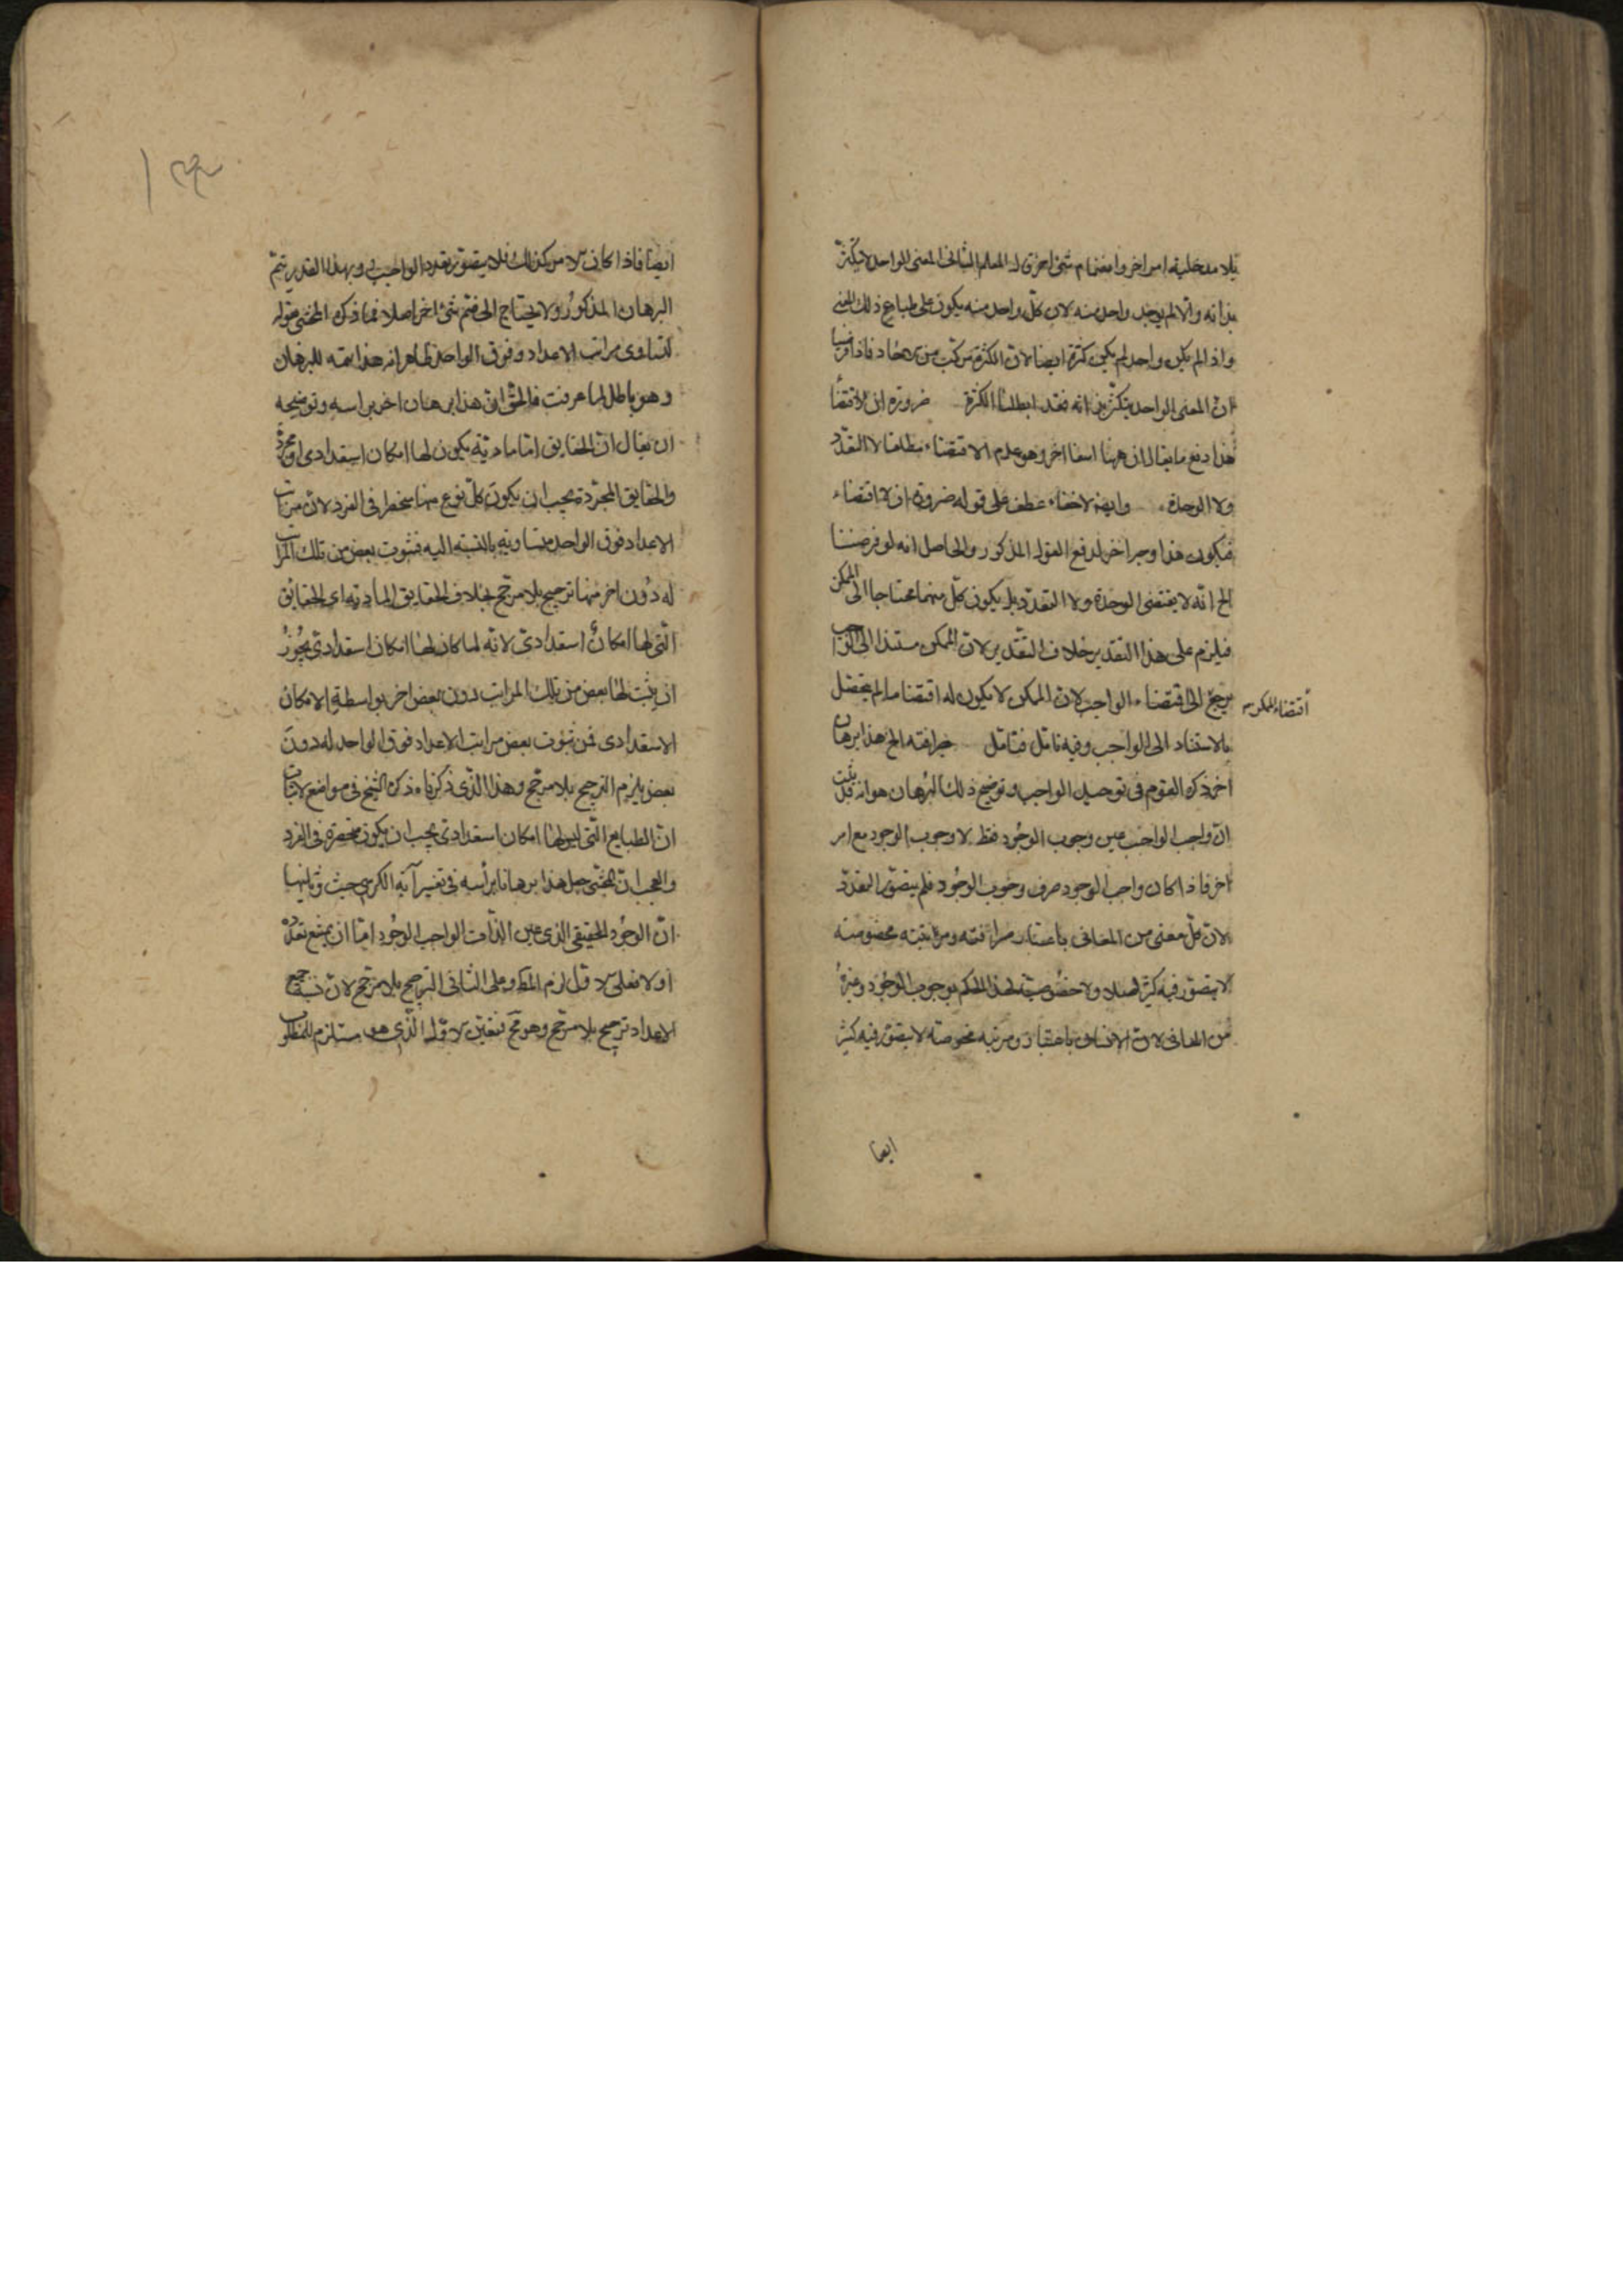 بلا مدخلية امر اخر وانضمام شئ اخر قال المعلم الثاني المعنى الواحد لا يتكثر
بذاته والا لم يوجد واحد منه لان كل واحد منه يكون على طباع ذلك المعنى
واذا لم يكن واحد لم يكن كثرة ايضا لان الكثرة مركبة من الاحاد فاذا فرضنا
ان المعنى الواحد يتكثر بذاته فقد ابطلنا الكثرة ضرورة ان الاقتضا
هذا دفع ما يقال ان ههنا اخر وهو عدم الاقتضاء مطلقا لا التعدد
ولا الوحدة وايضا لاخفاء عطف على قوله ضرورة ان الاقتضاء
فيكون هذا وجها اخر لدفع القول المذكور والحاصل انه لو فرضنا
الخ انه لا يقتضى الوحدة ولا التعدد بل يكون كل منهما محتاجا الى الممكن
فيلزم على هذا التقدير خلاف التقدير لان الممكن مستندا الى الواجب
اقتضاء الممكن
يرجع الى اقتضاء الواجب لان الممكن لا يكون له اقتضا ما لم يتحصل
بالاستناد الى الواجب وفيه تامل فتامل الخ هذا برهان
اخر ذكره القوم فى توحيد الواجب وتوضيح ذلك البرهان هو انه قد ثبت
ان واجب الواجب عين وجوب الوجود فقط لا وجوب الوجود مع امر
اخر فاذا كان واجب الوجود صرف وجوب الوجود فلم يتصور التعدد
لان كل معنى من المعانى باعتبار صرافته ومرتبته مخصوصته
لا يتصور فيه كثرة اصلا ولا خصوصية لهذا الحكم بوجوب الوجود وغيره
من المعانى لان الانسان باعتبار ومرتبه مخصوصته لا يتصور فيه كثر
ايضا
ايضا فاذا كان الامر كذلك فلا يتصور تعدد الواجب وبهذا القدر يتم
البرهان المذكور ولا يحتاج الى ضم شئ اخر اصلا فما ذكره المحشى بقوله
لتساوى مراتب الاعداد وفوق الواحد ظاهر انه هذا تتمه للبرهان
وهو باطل لما عرفت فالحق ان هذا برهان اخر براسه وتوضيحه
ان يقال ان الحقايق اما مادية يكون لها امكان استعدادى او مجردة
والحقايق المجردة يجب ان يكون كل نوع منها منحصرا فى الفرد لان مراتب
الاعداد فوق الواحد متساوية بالنسبة اليه فثبوت بعض من تلك المراتب
له دون اخر منها ترجيح بلا مرجح بخلاف الحقايق المادية اى الحقائق
التى لها امكان استعدادى لانه لما كان لها امكان استعدادى يجوز
ان يثبت لها بعض من تلك المراتب دون بعض اخر بواسطة الامكان
الاستعدادى فمن ثبوت بعض مراتب الاعداد فوق الواحد له دون
بعض يلزم الترجيح بلا مرجح وهذا الذى ذكرناه ذكره الشيخ فى مواضع لاثبات
ان الطبايع التى ليس لها امكان استعدادى يجب ان يكون منحصرة فى الفرد
والعجب ان المحشى جعل هذا برهانا برأسه فى تفسير آية الكرسى حيث
ان الوجود الحقيقى الذى عين الذات الواجب الوجود اما ان يمتنع تعدده
او لا فعلى الاول لزم المط وعلى الثانى الترجيح بلا مرجح لان نسبة جميع
الاعداد ترجيح بلا مرجح وهو مح فتعين الاول الذى هو مستلزم للمطلوب